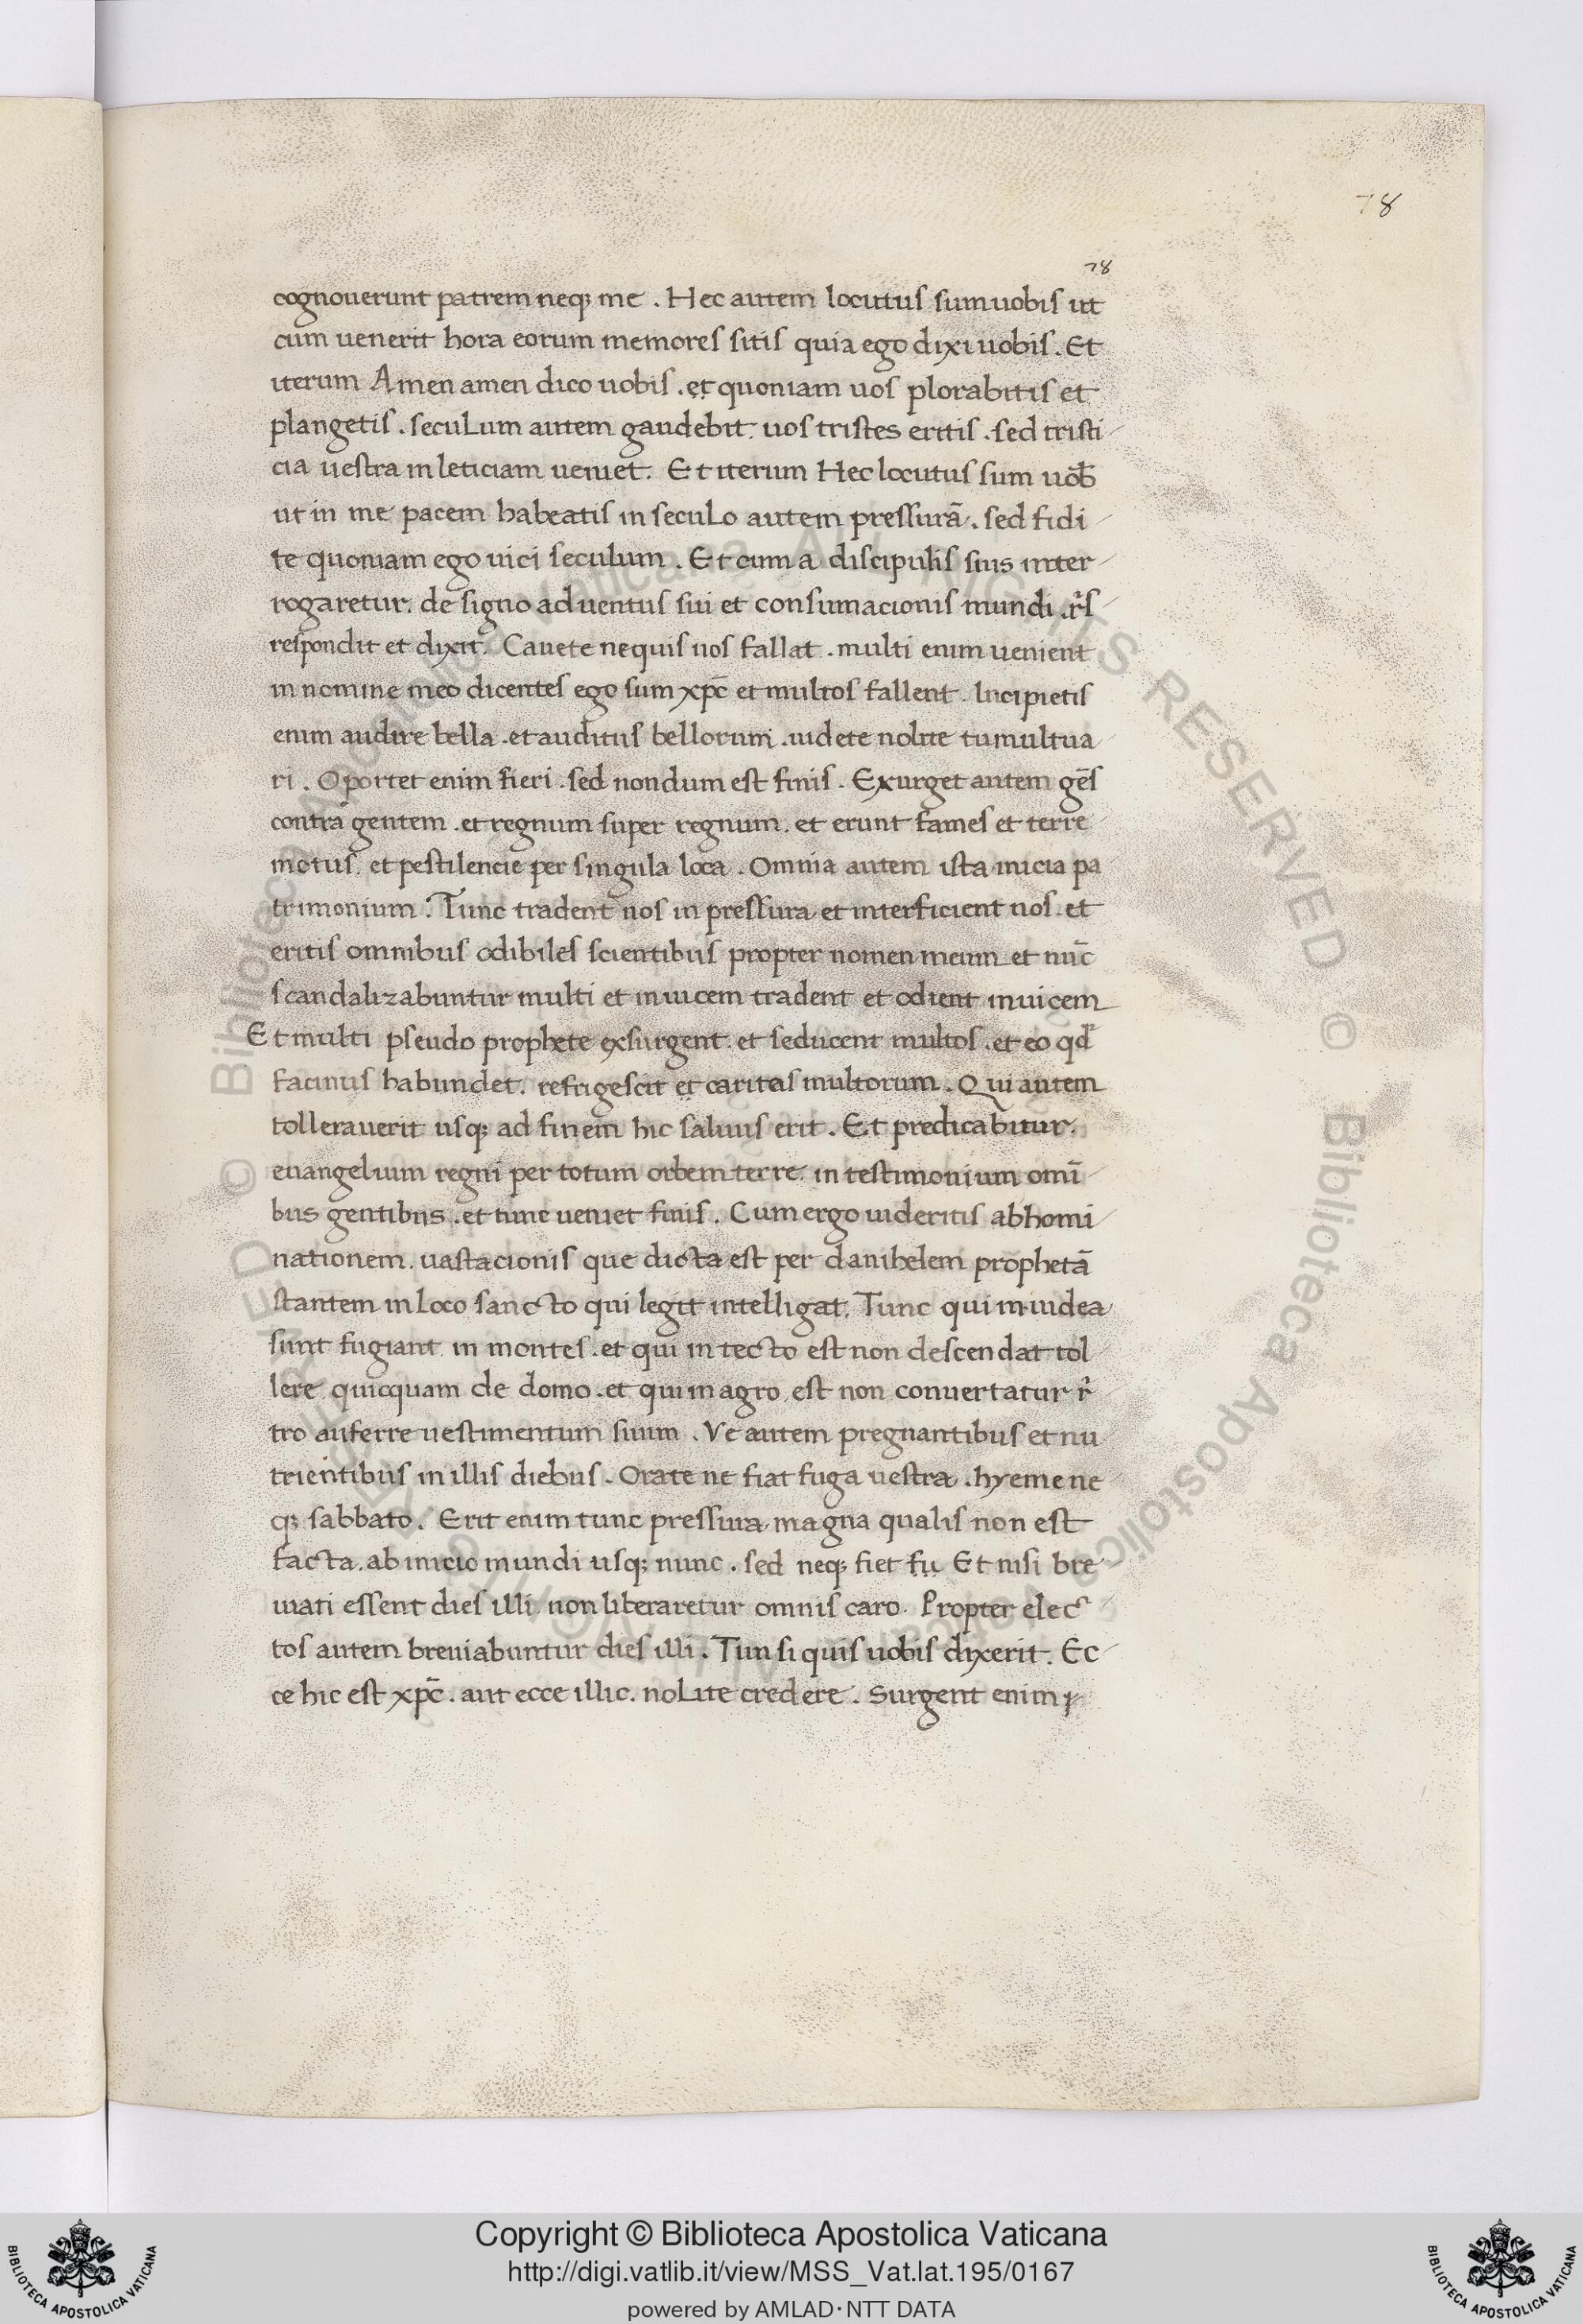 78
78
cognouerunt patrem neq; me . Hec autem locutus sum uobis ut
cum uenerit hora eorum memores sitis quia ego dixi uobis . Et
iterum Amen amen dico uobis . et quoniam uos plorabitis et
plangetis . seculum autem gaudebit . uos tristes eritis . sed tristi
cia uestra in leticiam ueniet . Et iterum Hec locutus sum uob̄
ut in me pacem habeatis in seculo autem pressurā . sed fidi
te quoniam ego uici seculum . Et cum a discipulis suis inter
rogaretur . de signo aduentus sui et consumacionis mundi .
respondit et dixit . Cauete ne quis uos fallat . multi enim uenient
in nomine meo dicentes ego sum xpc̄ et multos fallent . Incipietis
enim audire bella . et auditus bellorum . uidete nolite tumultua
ri . Oportet enim fieri . sed nondum est finis . Exurget autem gēs
contra gentem . et regnum super regnum . et erunt fames et terre
motus . et pestilencie per singula loca . Omnia autem ista inicia pa
trimonium . Tunc tradent uos in pressura et interficient uos . et
eritis omnibus odibiles scientibus propter nomen meum et nūc
scandalizabuntur multi et inuicem tradent et odient inuicem
Et multi pseudo prophete exsurgent . et seducent multos . et eo qd
facinus habundet . refrigescit et caritas multorum . Qui autem
tollerauerit usq; ad finem hic saluus erit . Et predicabitur .
euangelium regni per totum orbem terre . in testimonium omī
bus gentibus . et tunc ueniet finis . Cum ergo uideritis abhomi
nationem . uastacionis que dicta est per danihelem prophetā
stantem in loco sancto qui legit intelligat . Tunc qui in iudea
sunt fugiant in montes . et qui in tecto est non descendat tol
lere quicquam de domo . et qui in agro est non conuertatur r̓
tro auferre uestimentum suum . Ve autem pregnantibus et nu
trientibus in illis diebus . Orate ne fiat fuga uestra . hyeme ne
q; sabbato . Erit enim tunc pressura magna qualis non est
facta . ab inicio mundi usq; nunc . sed neq; fiet Et nisi bre
uiati essent dies illi . non liberaretur omnis caro . Propter elec
tos autem breuiabuntur dies illi . Tun si quis uobis dixerit . Ec
ce hic est xpc̄ . aut ecce illic . nolite credere . Surgent enim
© Biblioteca Apostolica Vaticana ALL RIGHTS RESERVED
Copyright © Biblioteca Apostolica Vaticana
http://digi.vatlib.it/view/MSS_Vat.lat.195/0167
powered by AMLAD·NTT DATA
BIBLIOTECA APOSTOLICA VATICANA
BIBLIOTECA APOSTOLICA VATICANA